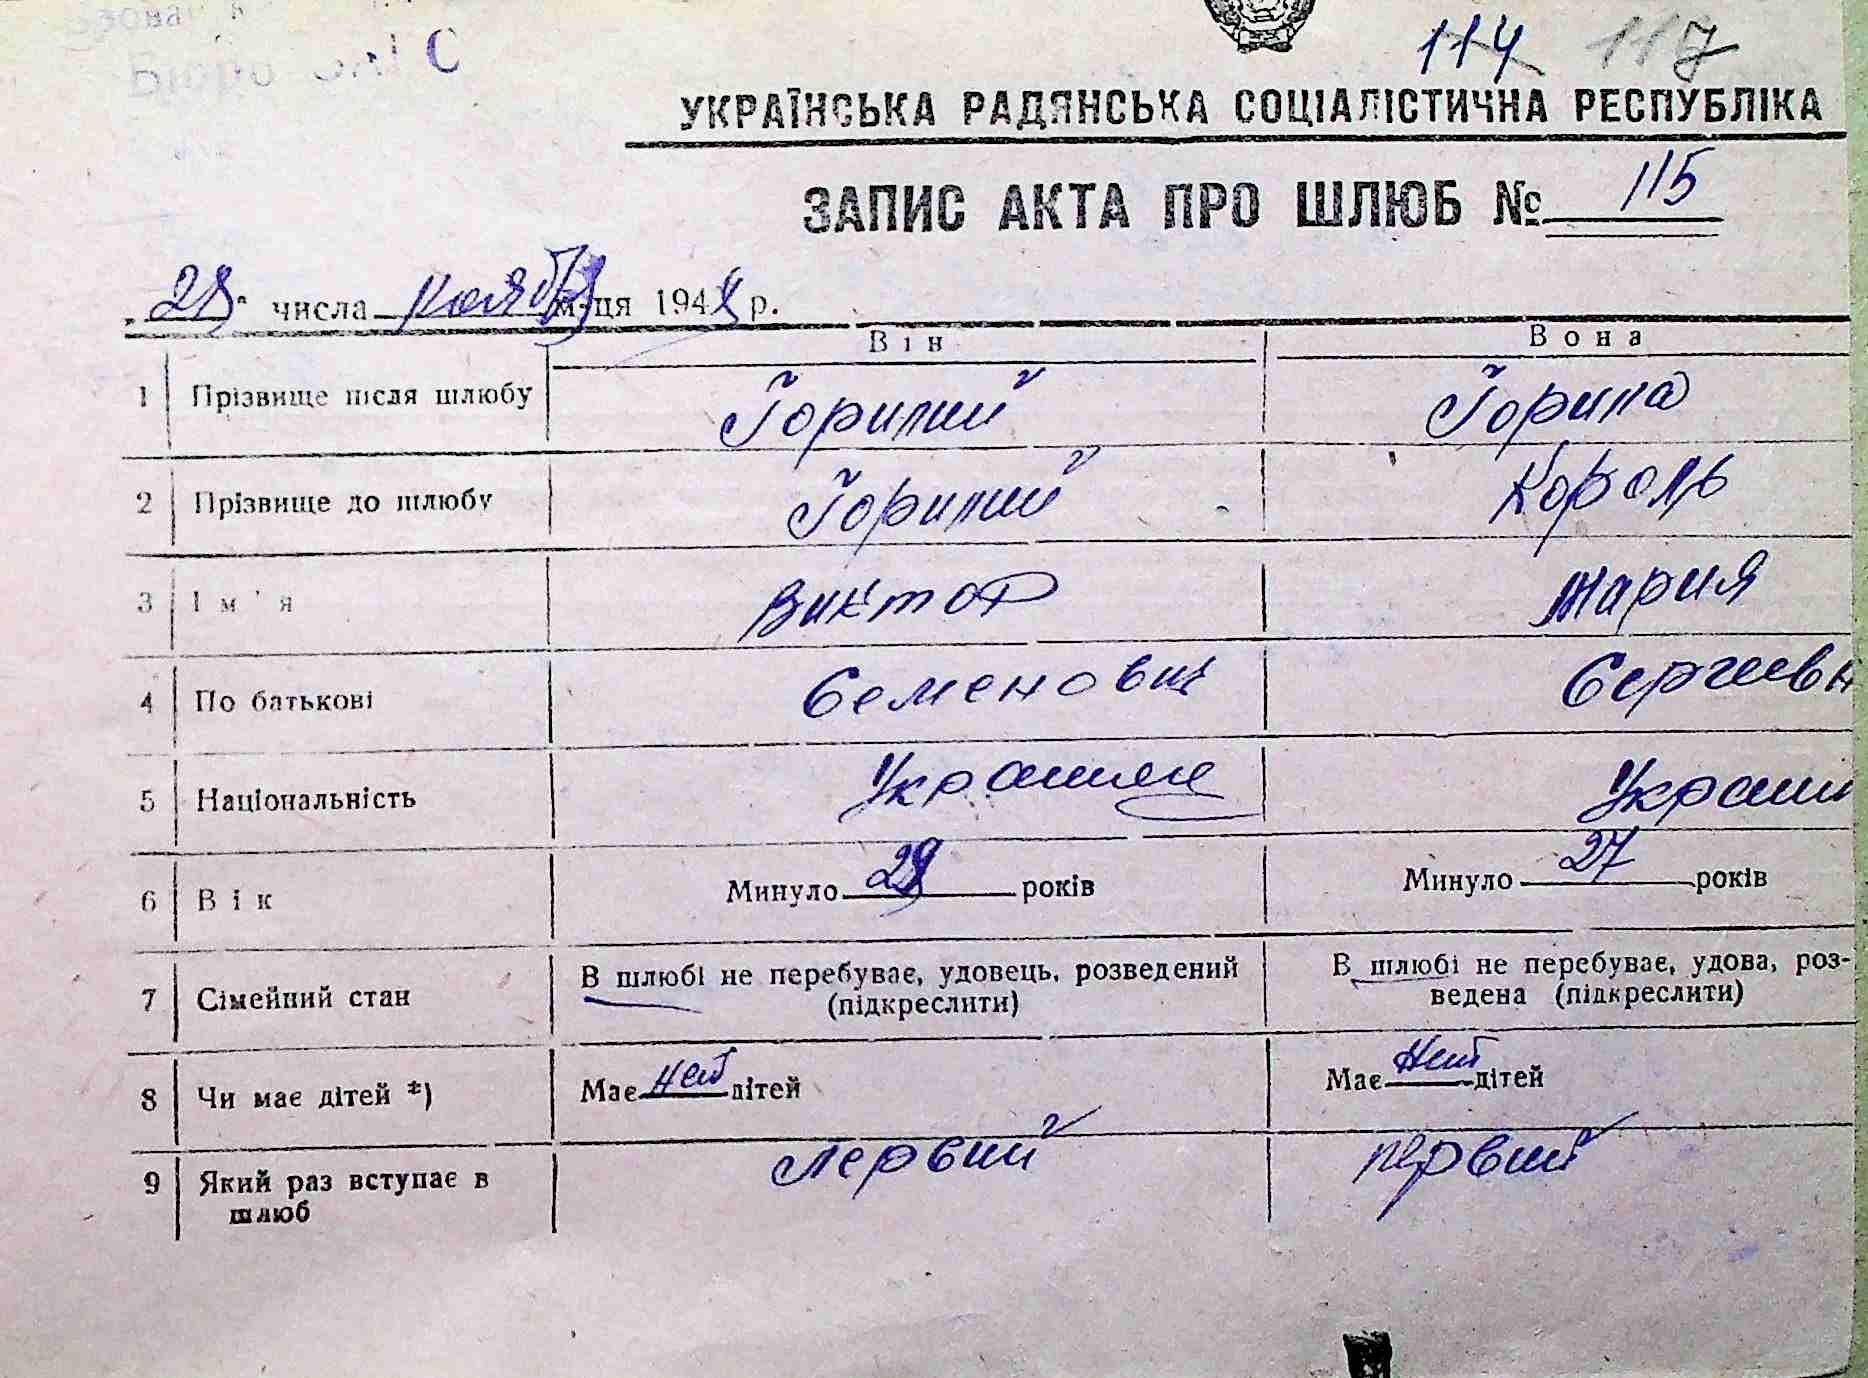 Бюро ЗАГС
114 117
УКРАЇНСЬКА РАДЯНСЬКА СОЦІАЛІСТИЧНА РЕСПУБЛІКА
ЗАПИС АКТА ПРО ШЛЮБ № 115
„28“ числа ноября м-ця 1948 р.
Він Вона
1 Прізвище після шлюбу Горилий Горила
2 Прізвище до шлюбу Горилий Король
3 Ім'я Виктор Мария
4 По батькові Семенович Сергеевн
5 Національність Украинец Украин
6 Вік Минуло 28 років Минуло 27 років
7 Сімейний стан В шлюбі не перебуває, удовець, розведений (підкреслити) В шлюбі не перебуває, удова, роз-
ведена (підкреслити)
8 Чи має дітей *) Має нет дітей Має нет дітей
9 Який раз вступає в шлюб первий первий